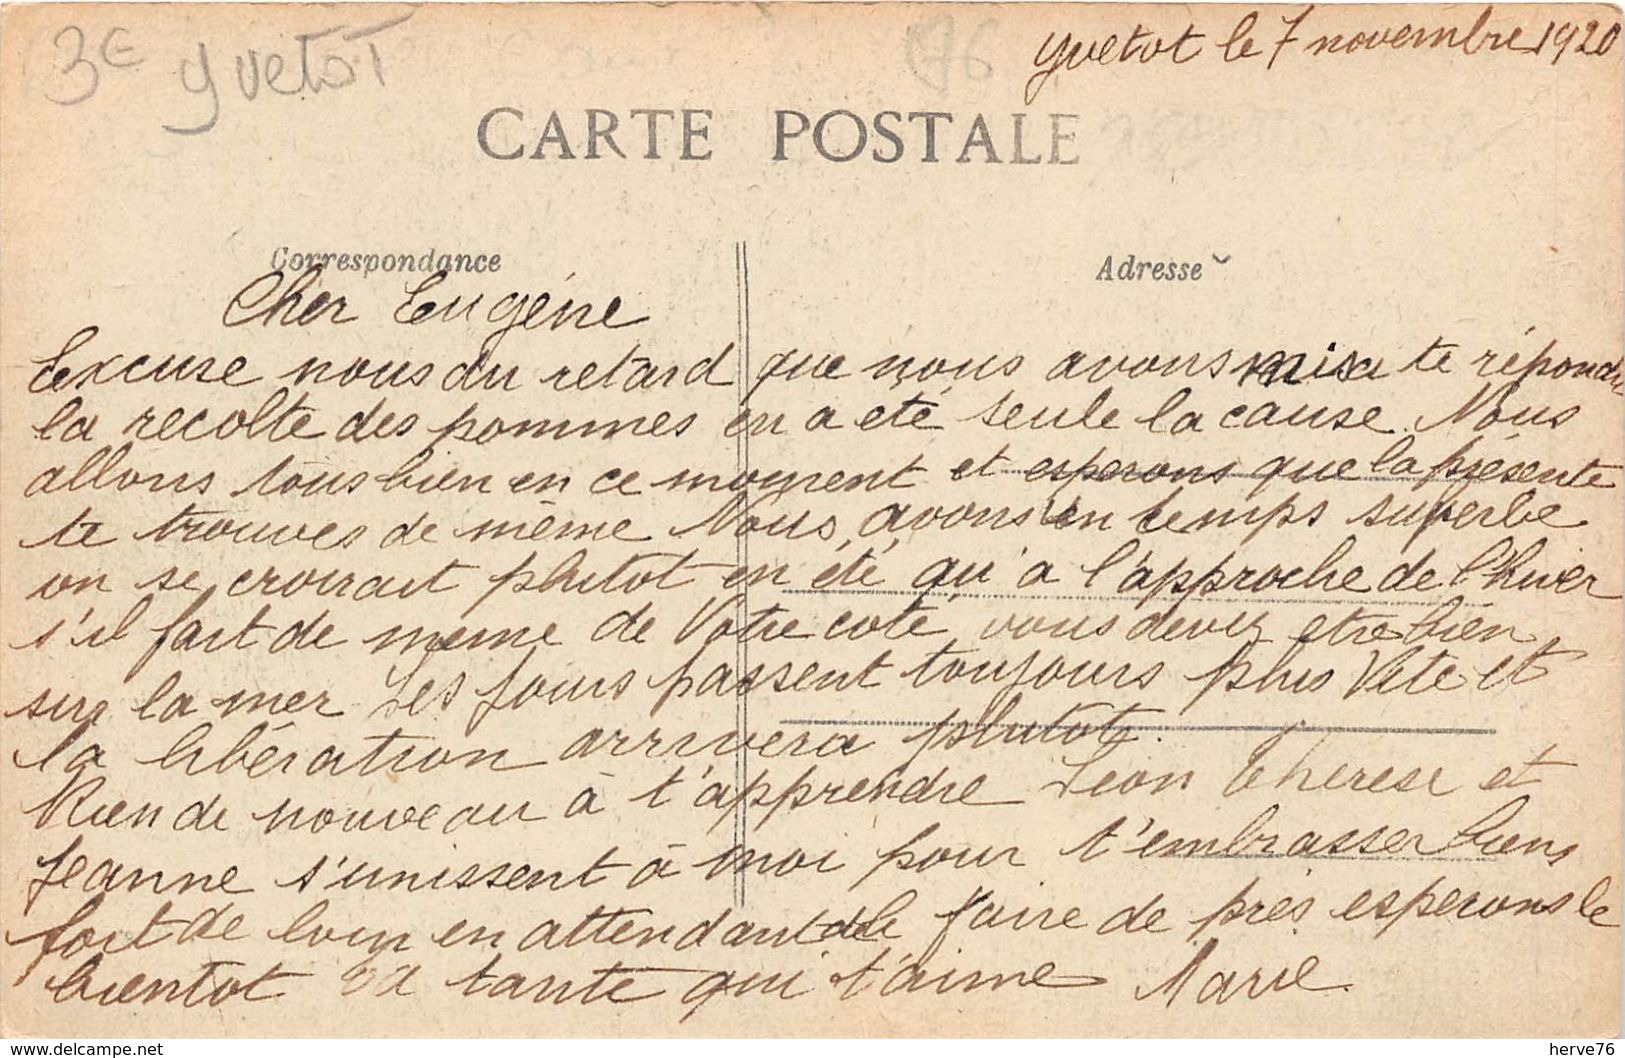 3e yvetot
76
yvetot le 7 novembre 1920
CARTE POSTALE
Correspondance
Adresse
Cher Eugène
Excuse nous du retard que nous avons mis a te répondre
la recolte des pommes en a été seule la cause. Nous
allons tous bien en ce moment et esperons que la présente
te trouves de même Nous avons un temps superbe
on se croirait plutot en été qu'a l'approche de l'hiver
s'il fait de meme de Votre coté, vous devez etre bien
sur la mer Les jours passent toujours plus Vite et
la libération arrivera plutot.
Rien de nouveau à t'apprendre Leon Therese et
Jeanne s'unissent à moi pour t'embrasser bien
fort de loin en attendant de le faire de près esperons le
bientot ta tante qui t'aime Marie
https://www.delcampe.net
herve76